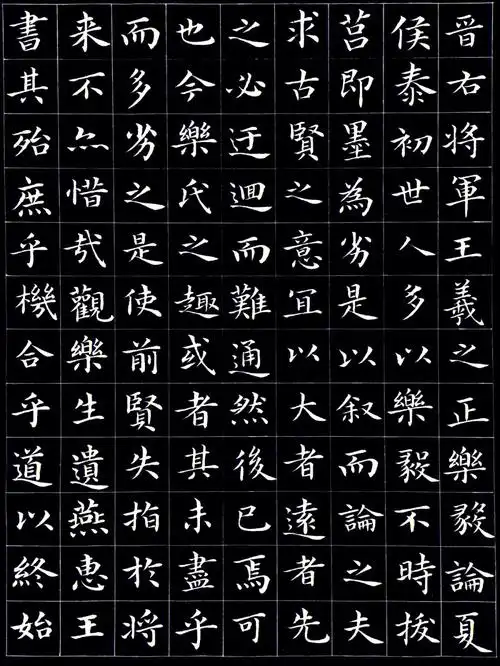 晉右將軍王羲之正樂毅論夏
侯泰初世人多以樂毅不時拔
莒即墨為劣是以叙而論之夫
求古賢之意宜以大者遠者先
之必迂迴而難通然後已焉可
也今樂氏之趣或者其未盡乎
而多劣之是使前賢失指於將
来不亦惜哉觀樂生遺燕惠王
書其殆庶乎機合乎道以終始